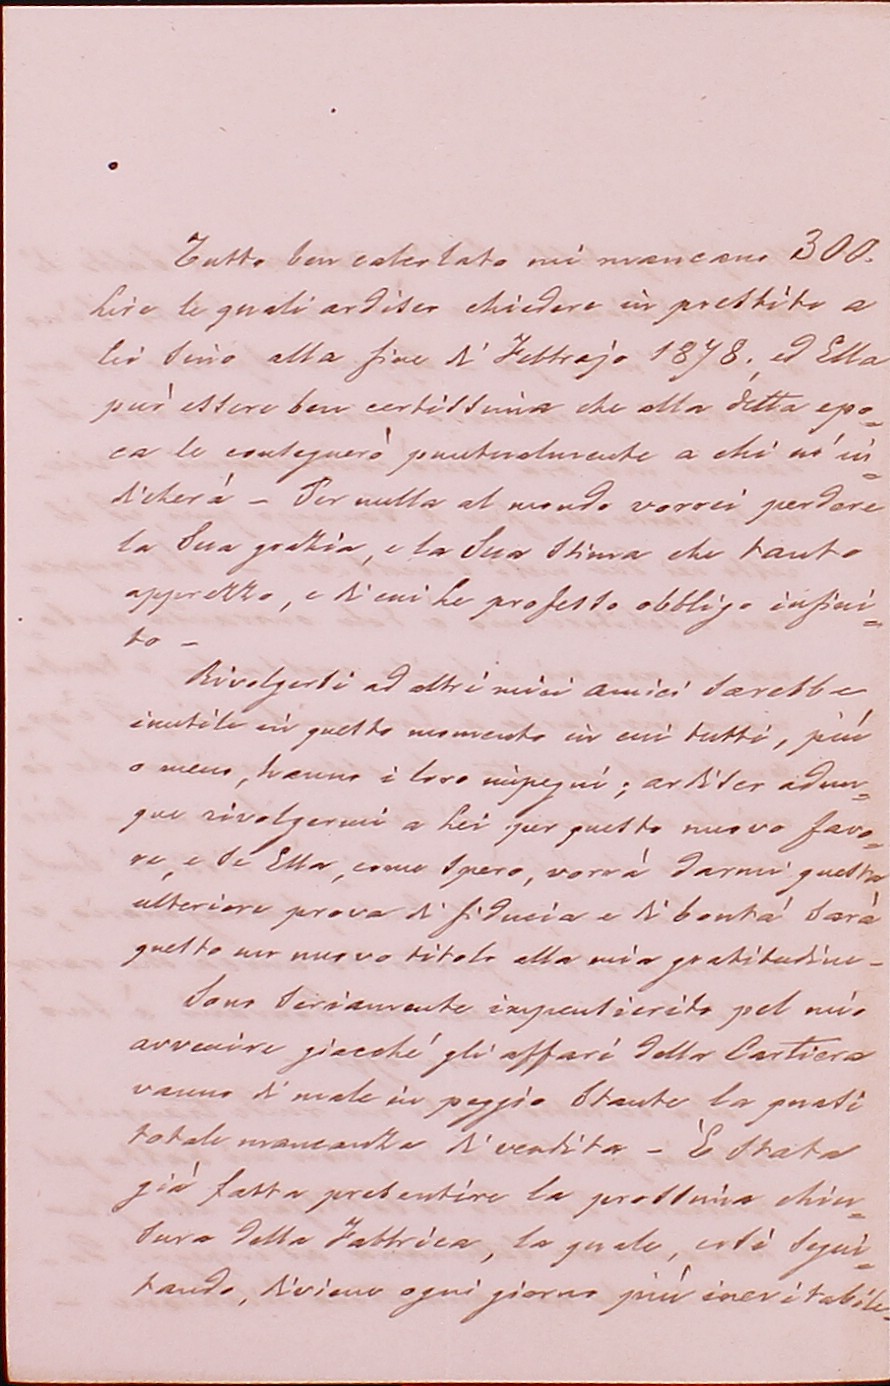 Tutto ben calcolato mi mancano 300.
Lire le quali ardisco chiedere in prestito a
Lei sino alla fine di Febbrajo 1878, ed Ella
può essere ben certissima che alla detta epo=
ca le consegnerò puntualmente a chi m'in=
dicherà – Per nulla al mondo vorrei perdere
la Sua grazia, e la Sua Stima che tanto
apprezzo, e di cui Le professo obbligo infini=
to –
Rivolgersi ad altri miei amici sarebbe
inutile in questo momento in cui tutti, più
o meno, hanno i loro impegni; ardisco adun=
que rivolgermi a Lei per questo nuovo favo=
re, e se Ella, come spero, vorrà darmi questa
ulteriore prova di fiducia e di bontà sarà
questo un nuovo titolo alla mia gratitudine –
Sono seriamente impensierito pel mio
avvenire giacché gli affari della Cartiera
vanno di male in peggio stante la quasi
totale mancanza di vendita – È stata
già fatta presentire la prossima chiu=
sura della Fabbrica, la quale, così segui=
tando, diviene ogni giorno più inevitabile –